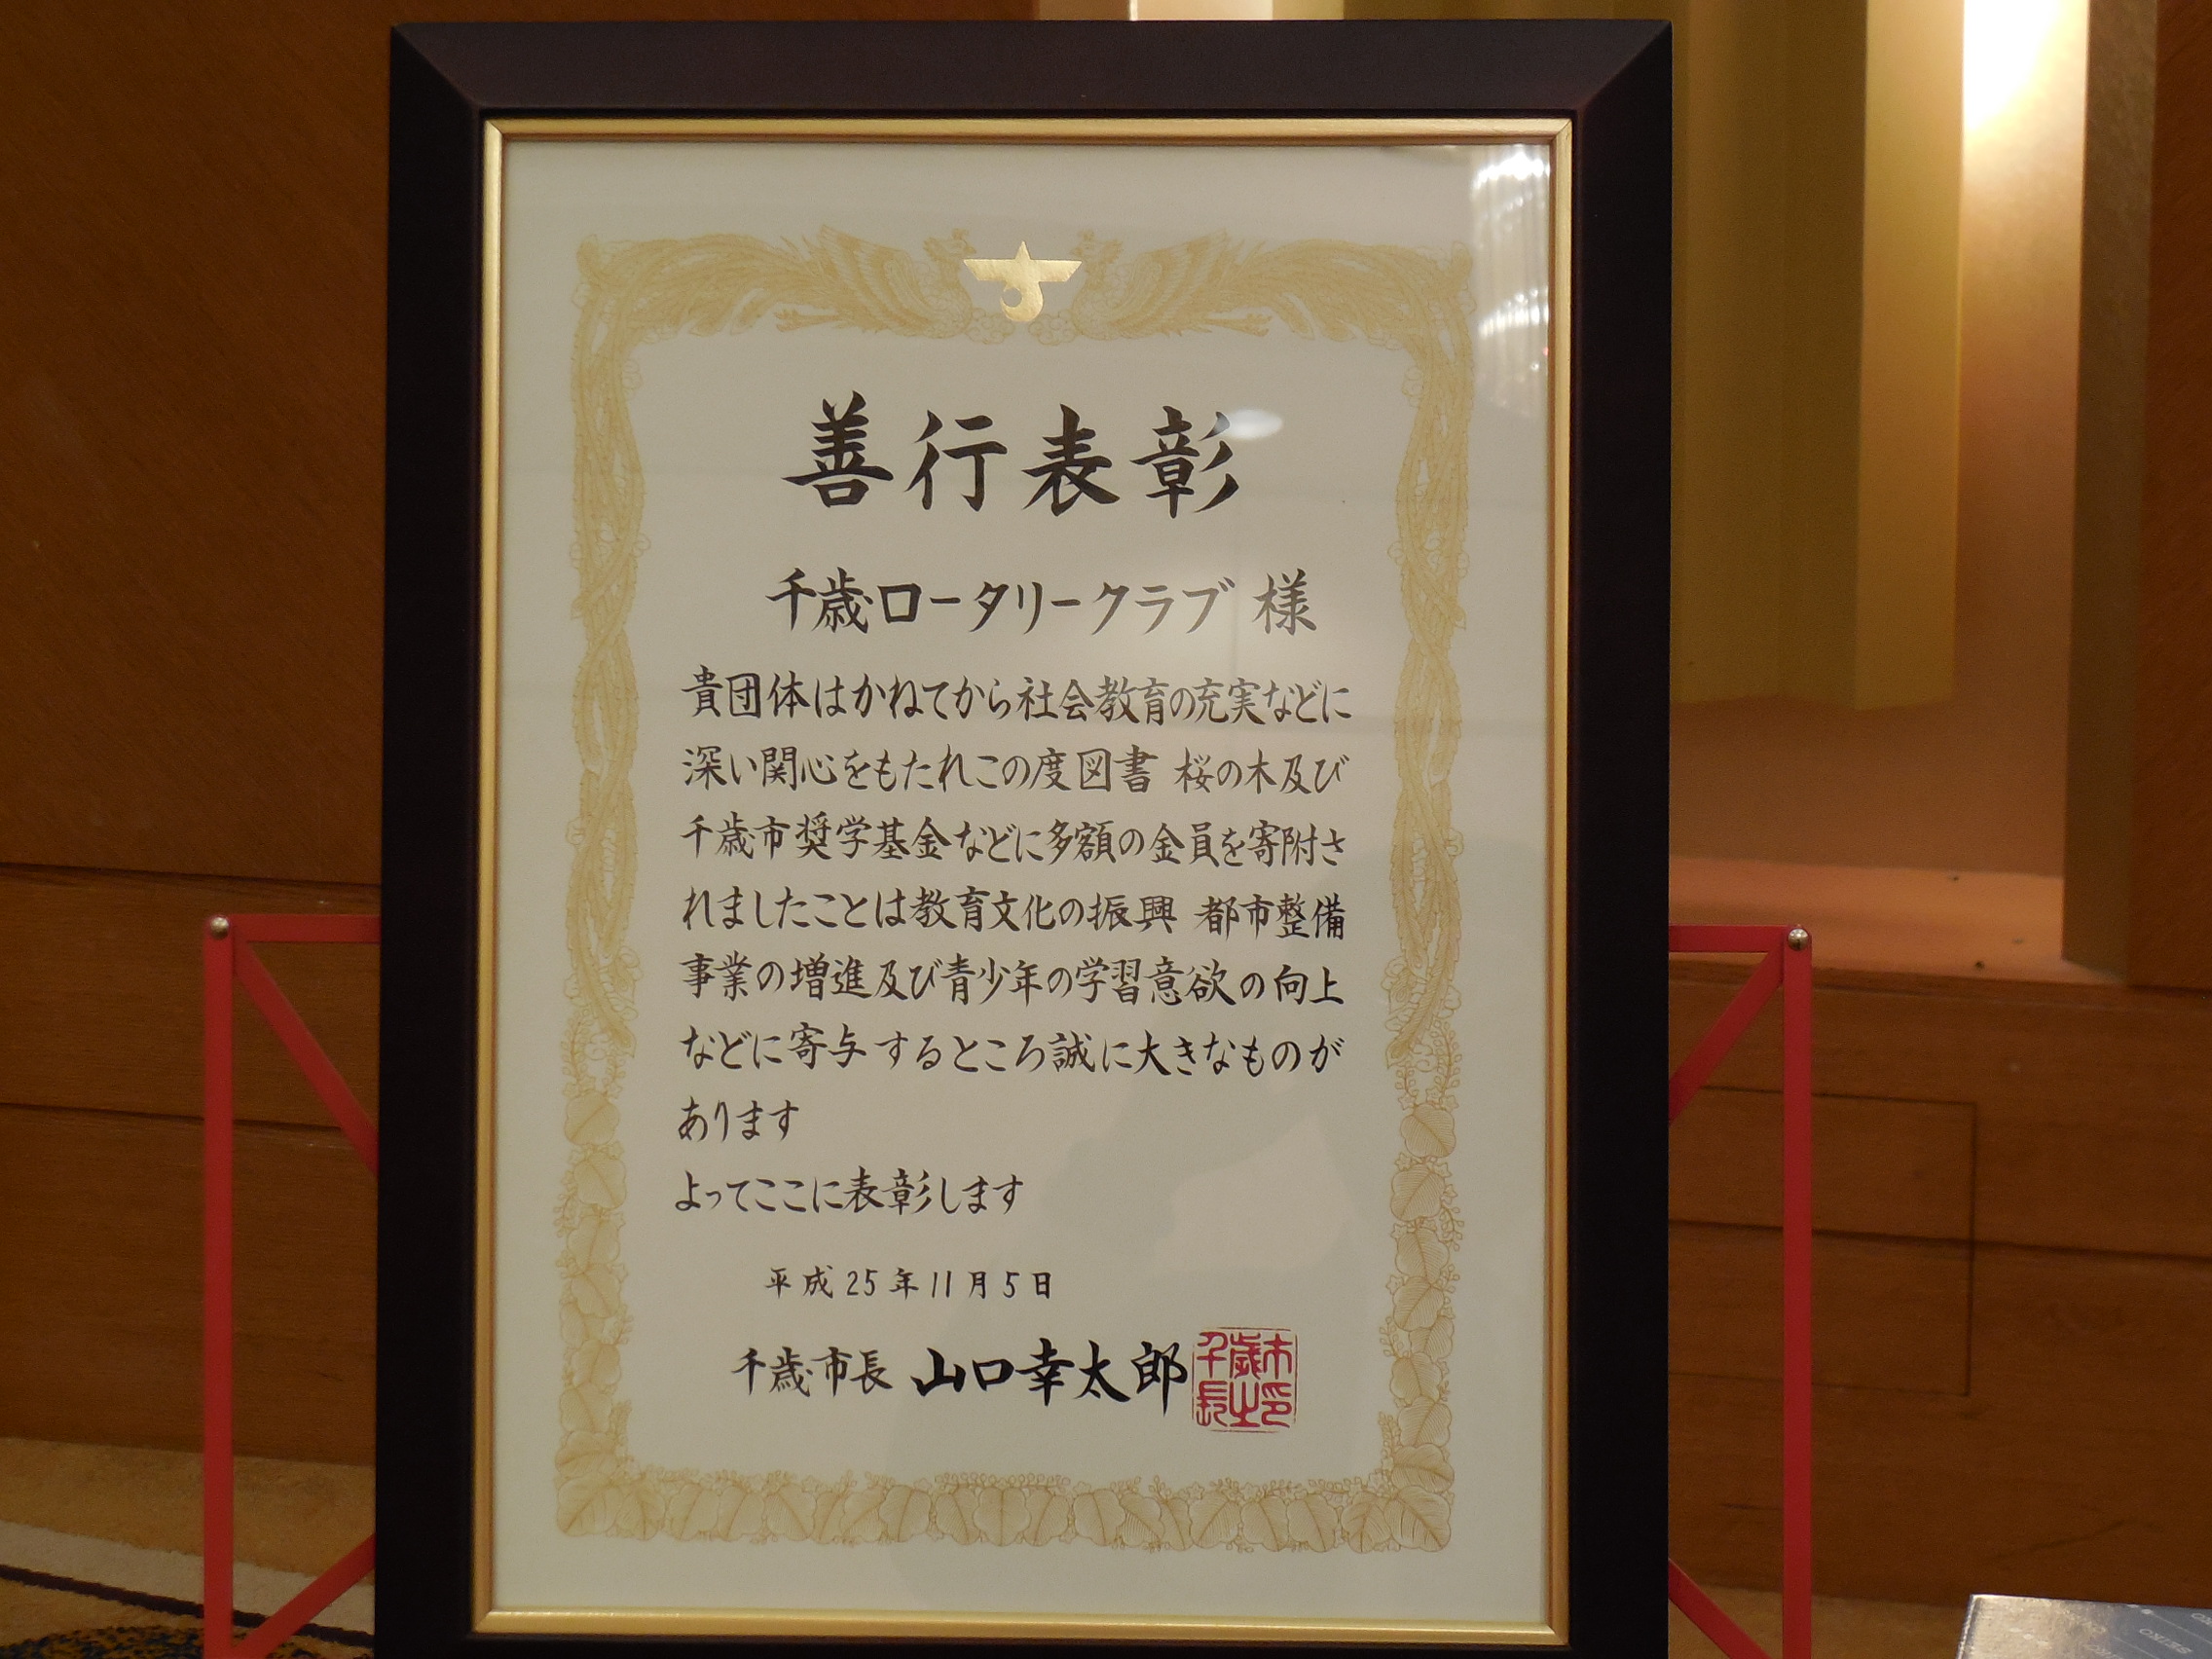 善行表彰
千歳ロータリークラブ 様
貴団体はかねてから社会教育の充実などに
深い関心をもたれこの度図書 桜の木及び
千歳市奨学基金などに多額の金員を寄附さ
れましたことは教育文化の振興 都市整備
事業の増進及び青少年の学習意欲の向上
などに寄与するところ誠に大きなものが
あります
よってここに表彰します
平成25年11月5日
千歳市長 山口幸太郎
千歳市
長之印
SEIKO